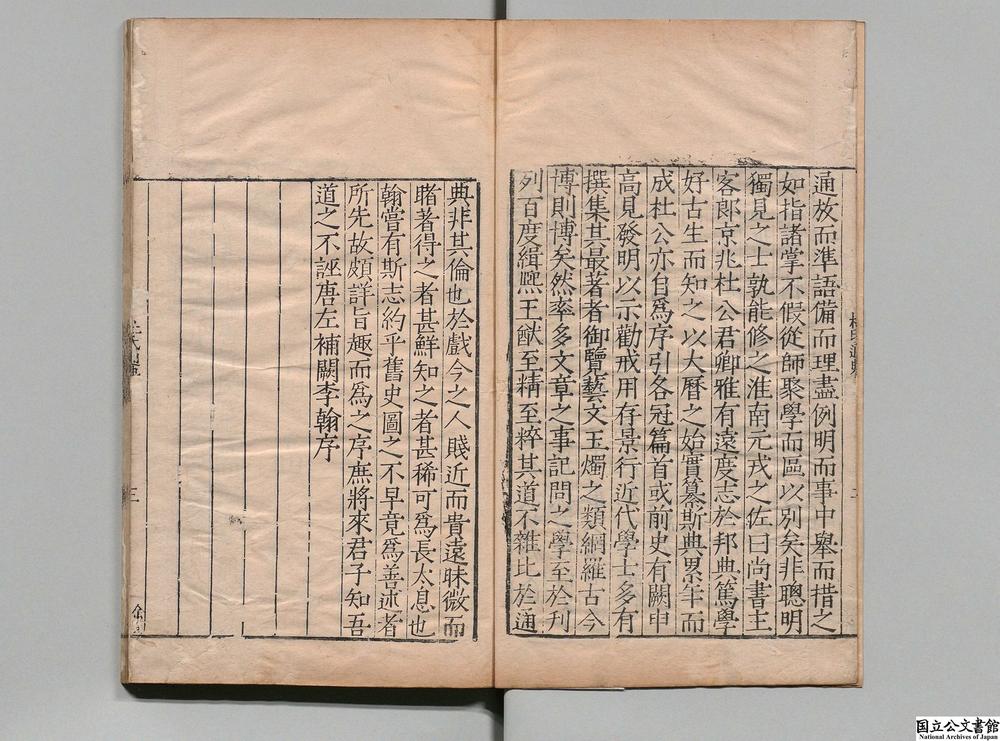 通放而準語備而理盡例明而事中舉而措之
如指諸掌不假從師聚學而區以別矣非聰明
獨見之士孰能修之淮南元戎之佐曰尚書主
客郎京兆杜公君卿雅有遠度志於邦典篤學
好古生而知之以大曆之始實纂斯典累年而
成杜公亦自爲序引各冠篇首或前史有闕申
高見發明以示勸戒用存景行近代學士多有
撰集其最著者御覽藝文玉燭之類網羅古今
博則博矣然率多文章之事記問之學至於刋
列百度緝熙王猷至精至粹其道不雜比於通
典非其倫也於戲今之人賤近而貴遠昧微而
睹著得之者甚鮮知之者甚稀可爲長太息也
翰嘗有斯志約乎舊史圖之不早竟爲善述者
所先故頗詳旨趣而爲之序庶將來君子知吾
道之不誣唐左補闕李翰序
三
国立公文書館
National Archives of Japan